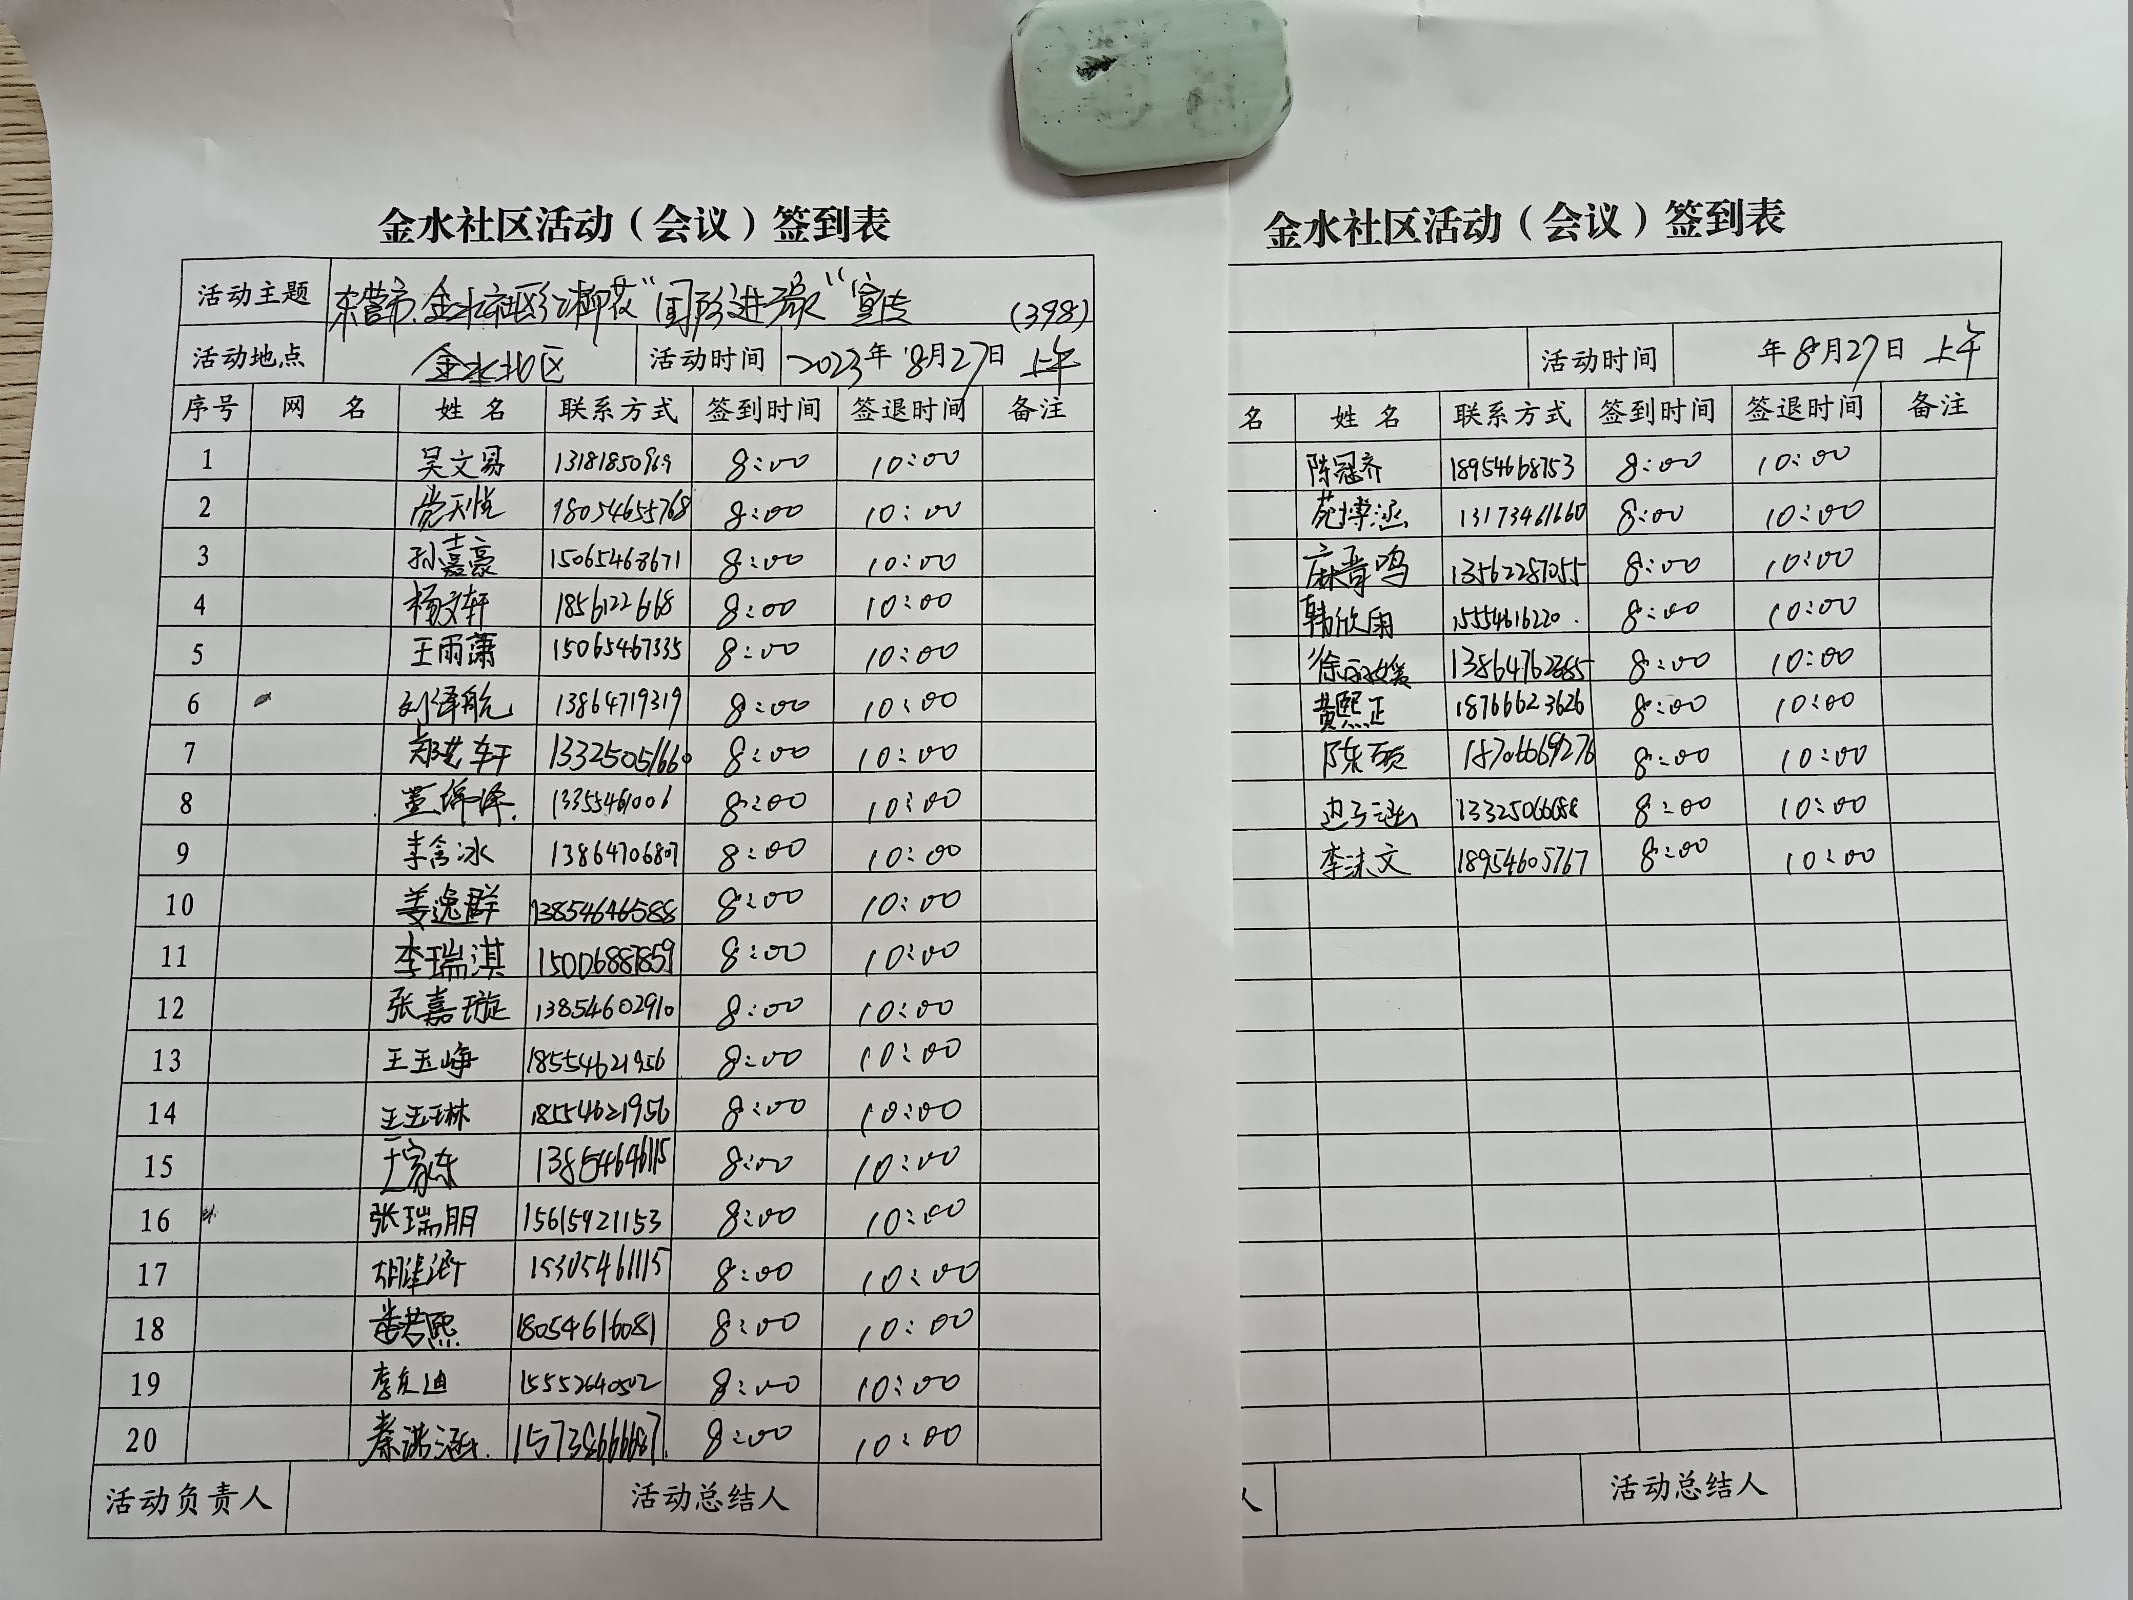 金水社区活动（会议）签到表
活动主题 东营市金水社区红柳花“国防进家”宣传 (398)
活动地点 金水北区 活动时间 2023年8月27日 上午
序号 网 名 姓 名 联系方式 签到时间 签退时间 备注
1 吴文易 13181850969 8:00 10:00
2 党天悦 18054655768 8:00 10:00
3 孙嘉豪 15065468671 8:00 10:00
4 杨文轩 1856122668 8:00 10:00
5 王雨萧 15065467335 8:00 10:00
6 刘泽航 13864719319 8:00 10:00
7 郑艺轩 13325051660 8:00 10:00
8 董 13355461006 8:00 10:00
9 李含冰 13864706807 8:00 10:00
10 姜逸群 13854646588 8:00 10:00
11 李瑞淇 15006887859 8:00 10:00
12 张嘉璇 13854602910 8:00 10:00
13 王玉峥 18554621956 8:00 10:00
14 王玉琳 18554621956 8:00 10:00
15 家东 13854646115 8:00 10:00
16 张瑞朋 15615921153 8:00 10:00
17 胡 15305461115 8:00 10:00
18 若熙 18054616081 8:00 10:00
19 李 迪 15552640502 8:00 10:00
20 秦 涵 15738666687 8:00 10:00
活动负责人 活动总结人
金水社区活动（会议）签到表
活动时间 年8月27日 上午
名 姓 名 联系方式 签到时间 签退时间 备注
陈冠齐 18954668753 8:00 10:00
苑博涵 13173461660 8:00 10:00
麻晋鸣 13562287055 8:00 10:00
韩欣雨 15554616220 8:00 10:00
徐 媛 8:00 10:00
黄熙正 18766623626 8:00 10:00
陈硕 18706669276 8:00 10:00
边子涵 13325066688 8:00 10:00
李沫文 18954605767 8:00 10:00
人 活动总结人